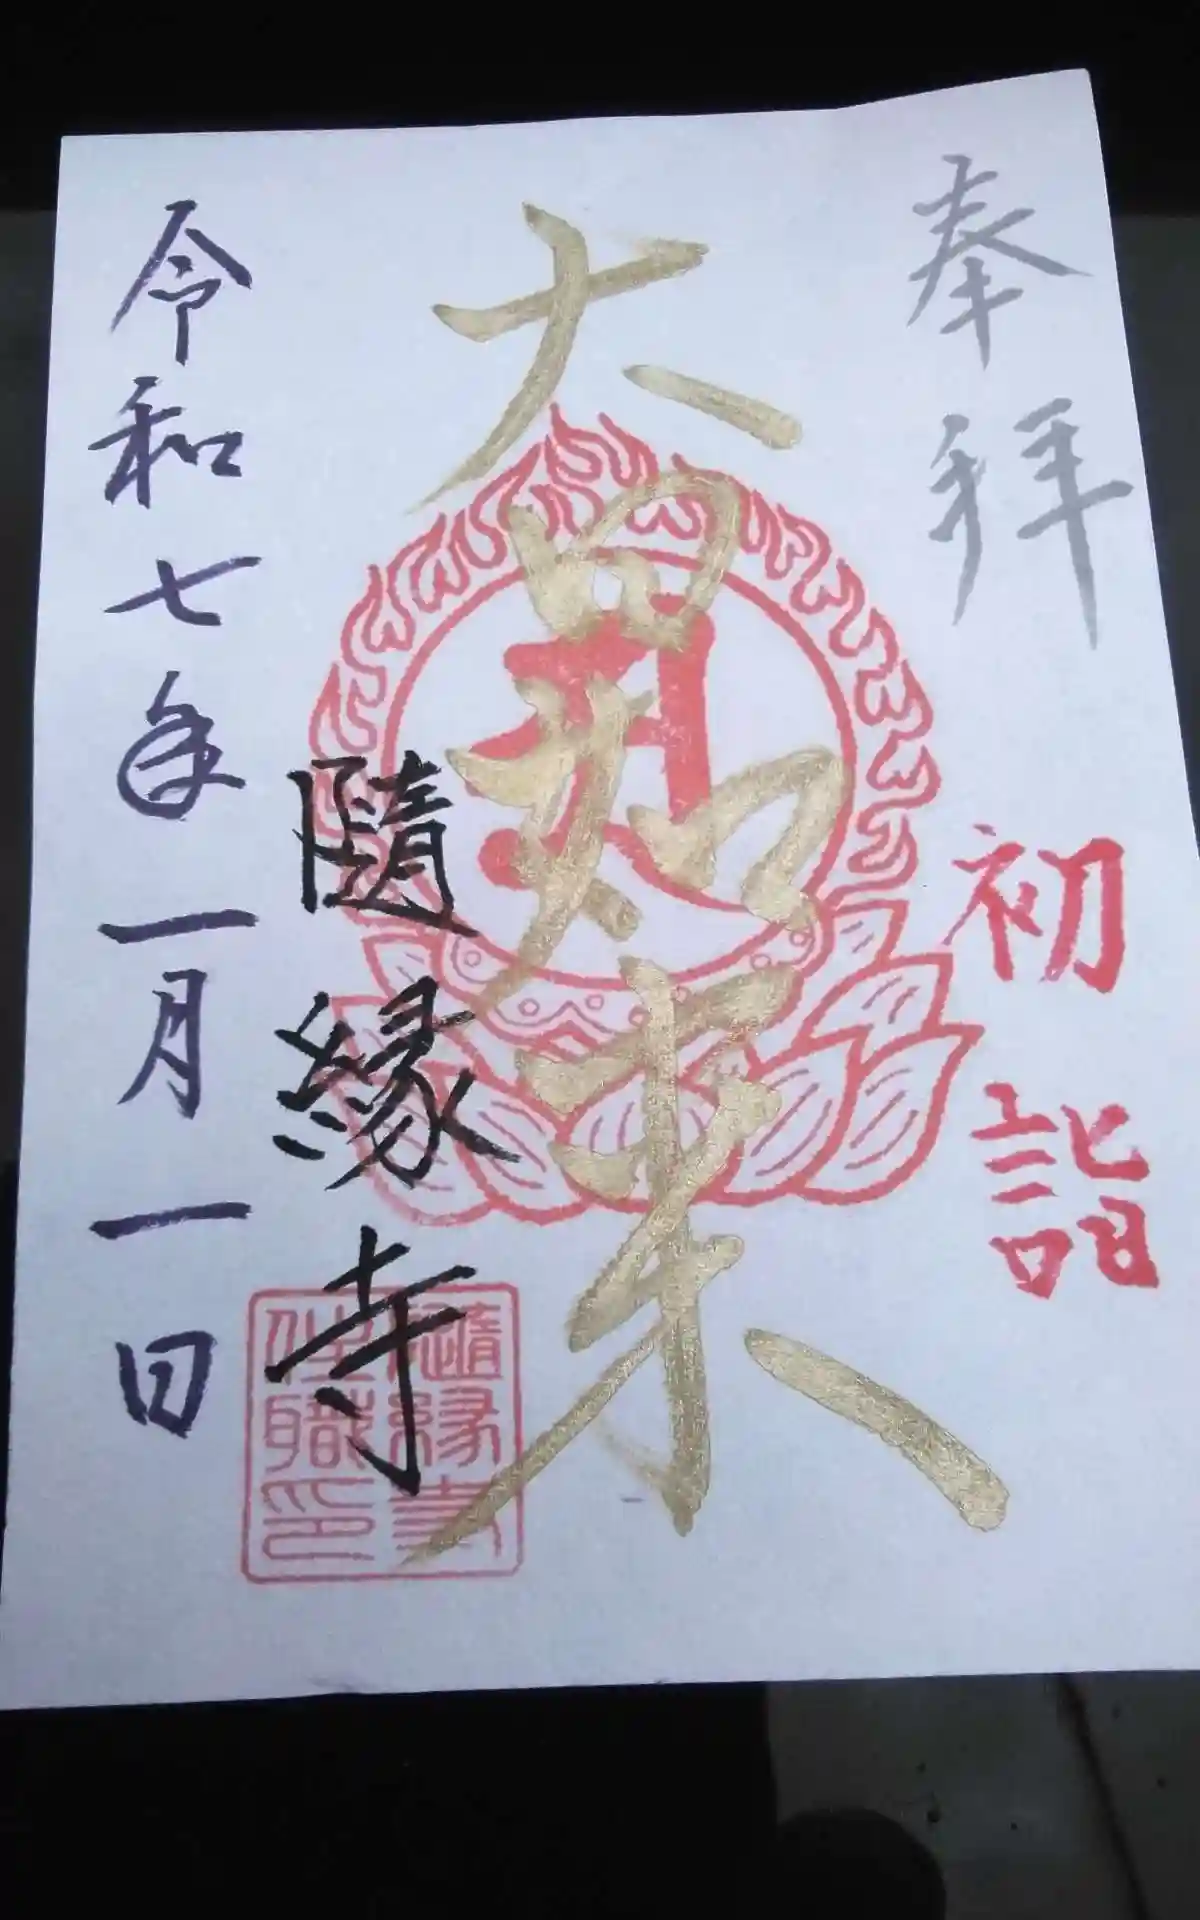 奉拝
初詣
大日如来
隨縁寺
令和七年一月一日
隨縁寺
住職印